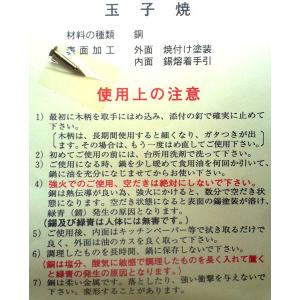 玉子焼
材料の種類　銅
表面加工　外面　焼付け塗装
内面　錫熔着手引
使用上の注意
1）最初に木柄を取手にはめ込み、添付の釘で確実に止めて
下さい。
（木柄は、長期間使用すると細くなり、ガタつきが出
ます。その場合は、もう一度はめ直してご使用下さい。）
2）初めてご使用の前には、台所用洗剤で洗って下さい。
3）ご使用になる時に、鍋を少し暖めて食用油を何回か引いて、
鍋に油を充分になじませてからご使用下さい。
4）強火でのご使用、空だきは絶対にしないで下さい。
鍋は熱伝導が良い為、強火にかけると、数分で空だき状
態となります。空だき状態となると表面の錫塗装が溶け、
緑青（錆）発生の原因となります。
（錫及び緑青は人体には無害です。）
5）ご使用後、内面はキッチンペーパー等で拭き取るだけで
良く、外面は油のカスを良く取って下さい。
6）調理したものを長時間、鍋に保存しないで下さい。
（銅は塩分、酸気に敏感で調理したものを長く入れて置く
と緑青の発生の原因となります。）
7）銅は柔い金属です。落としたり、強い衝撃を与えないで
下さい。変形することがあります。